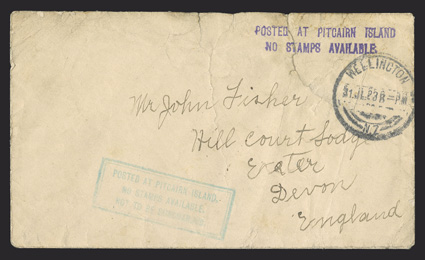 POSTED AT PITCAIRN ISLAND
NO STAMPS AVAILABLE.
WELLINGTON
N.Z.
Mr John Fisher
Hill Court Lodge
Exeter
Devon
England
POSTED AT PITCAIRN ISLAND.
NO STAMPS AVAILABLE.
NOT TO BE